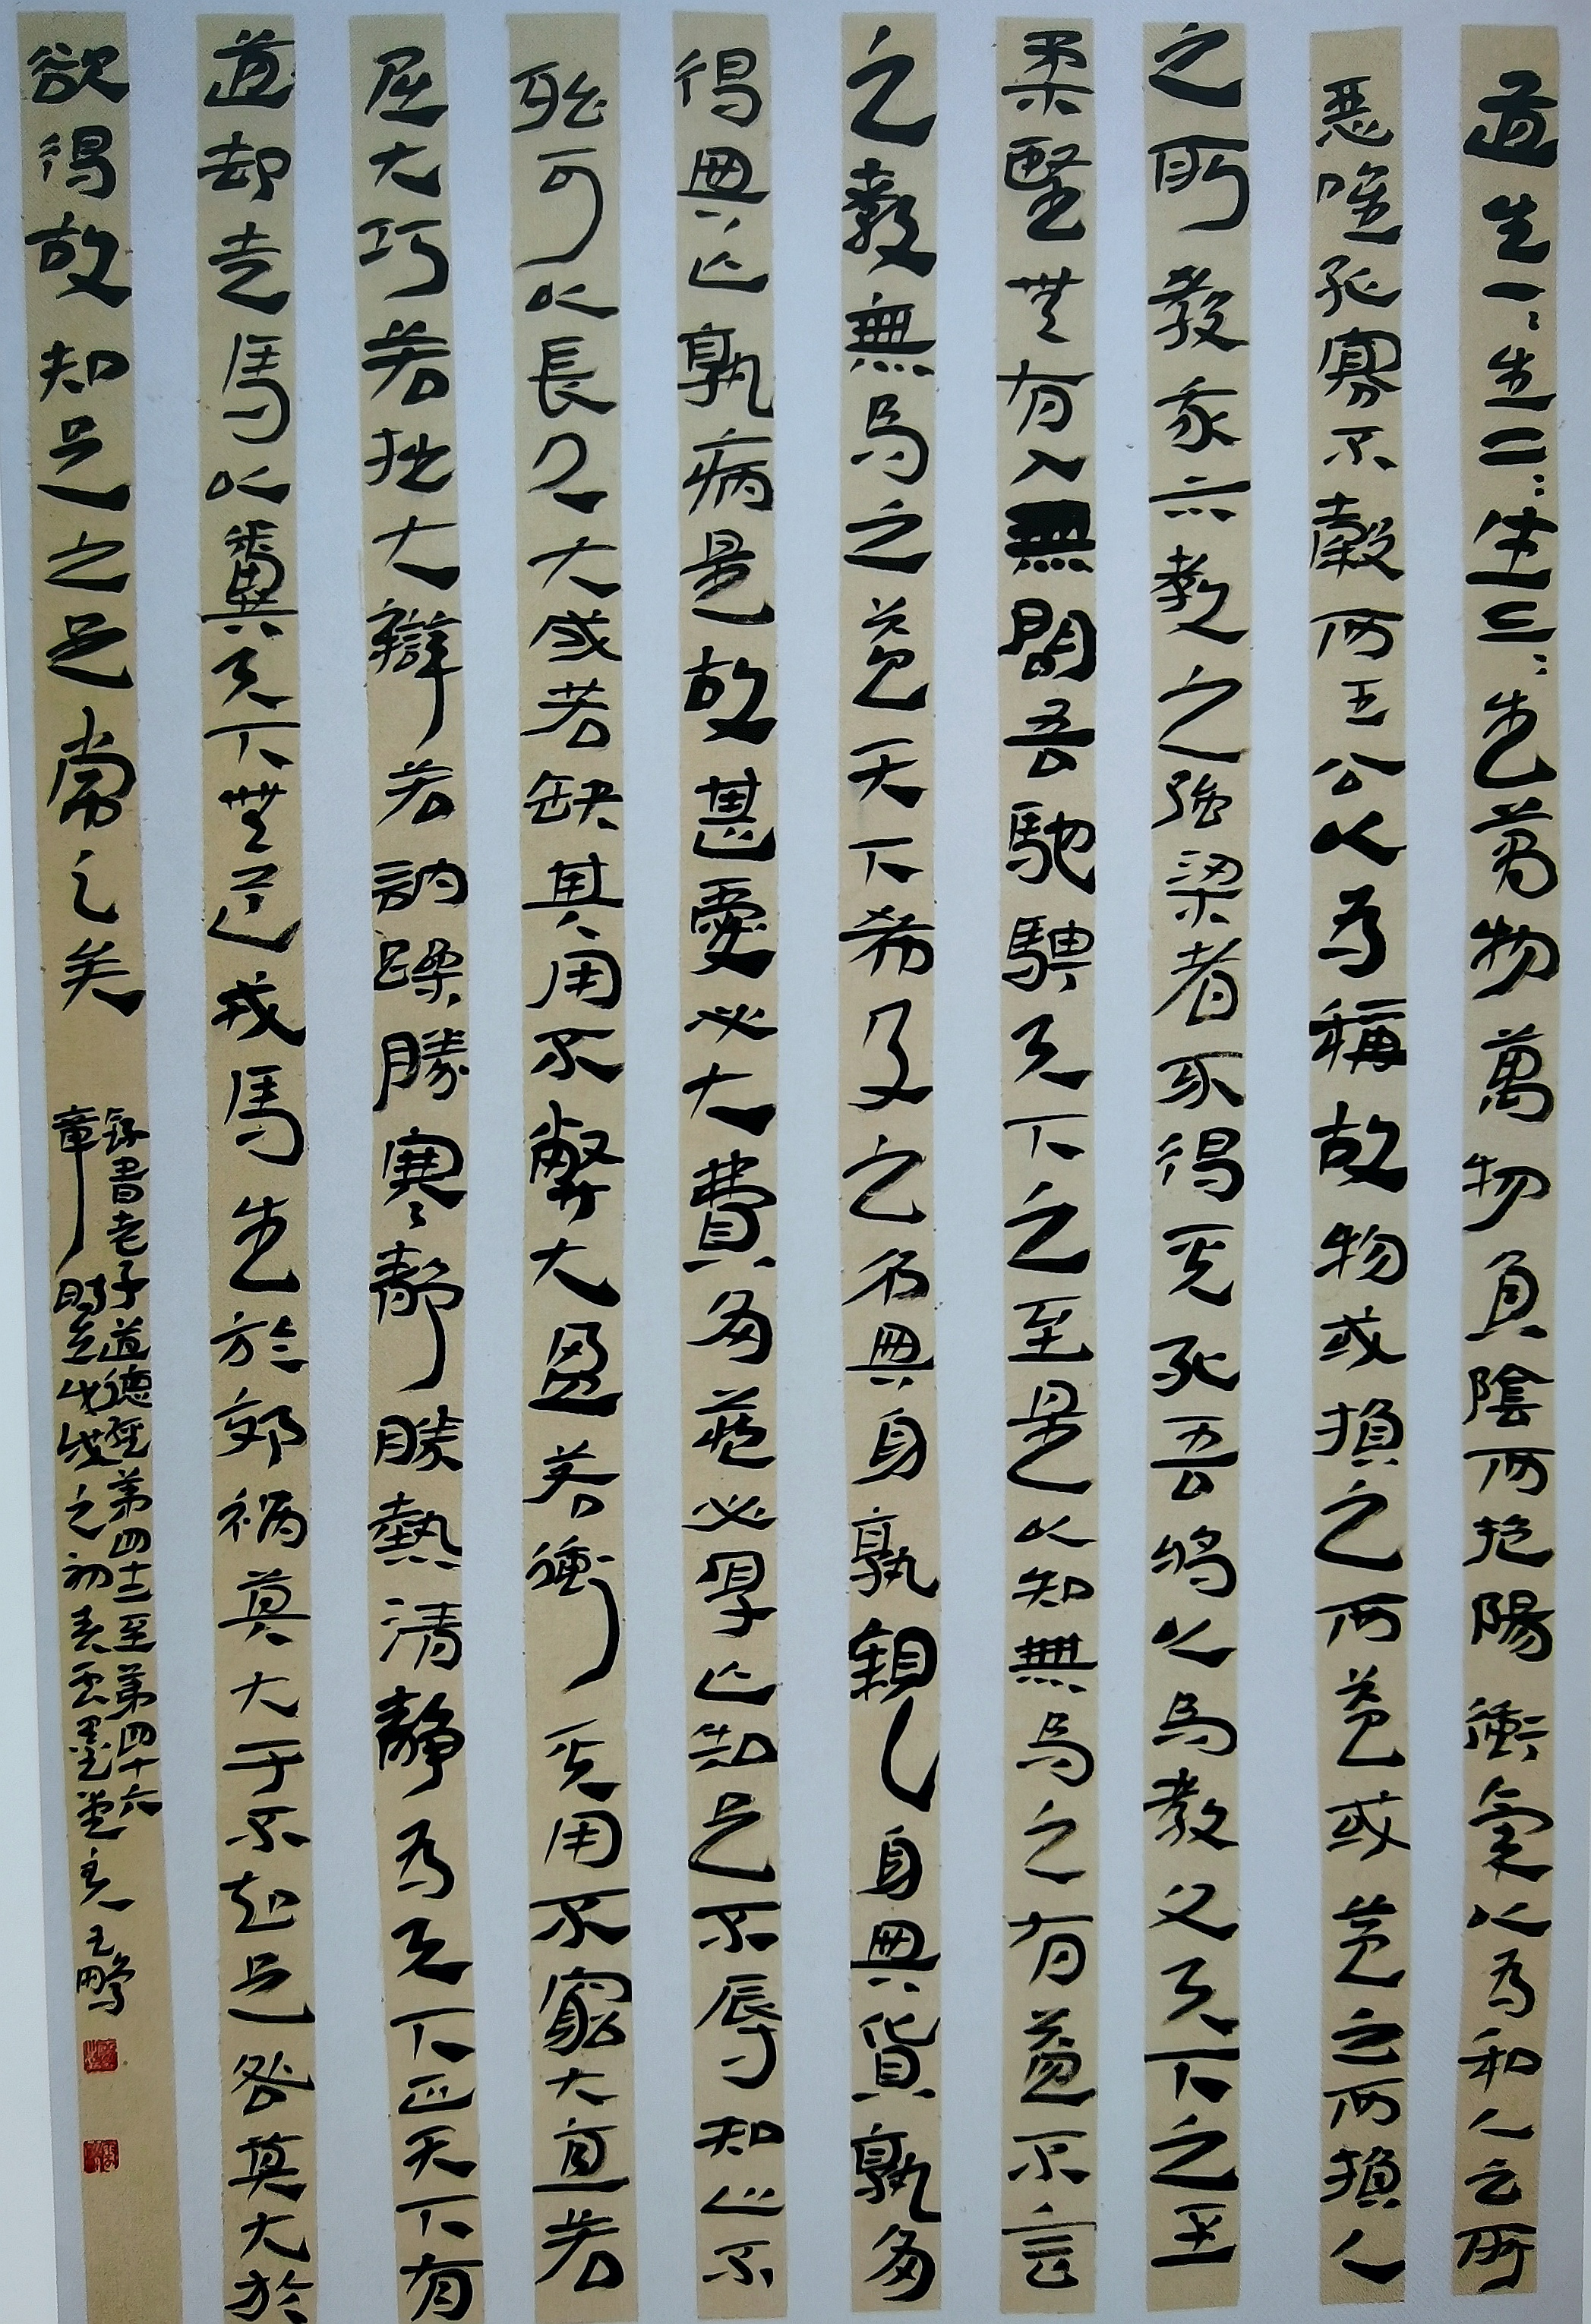 道生一〻生二〻生三〻生萬物萬物負陰而抱陽衝氣以為和人之所
惡唯孤寡不穀而王公以為稱故物或損之而益或益之而損人
之所教我亦教之強梁者不得其死吾將以為教父天下之至
柔堅無有入無間吾馳騁天下之至是以知無為之有益不言
之教無為之益天下希及之名與身孰親身與貨孰多
得與亡孰病是故甚愛必大費多藏必厚亡知足不辱知止不
殆可以長久大成若缺其用不弊大盈若衝其用不窮大直若
屈大巧若拙大辯若訥躁勝寒靜勝熱清靜為天下正天下有
道却走馬以糞天下無道戎馬生於郊禍莫大于不知足咎莫大於
欲得故知足之足常足矣
錄書老子道德經第四十二至第四十六
章時在戊戌之初春雲墨堂主王鵬